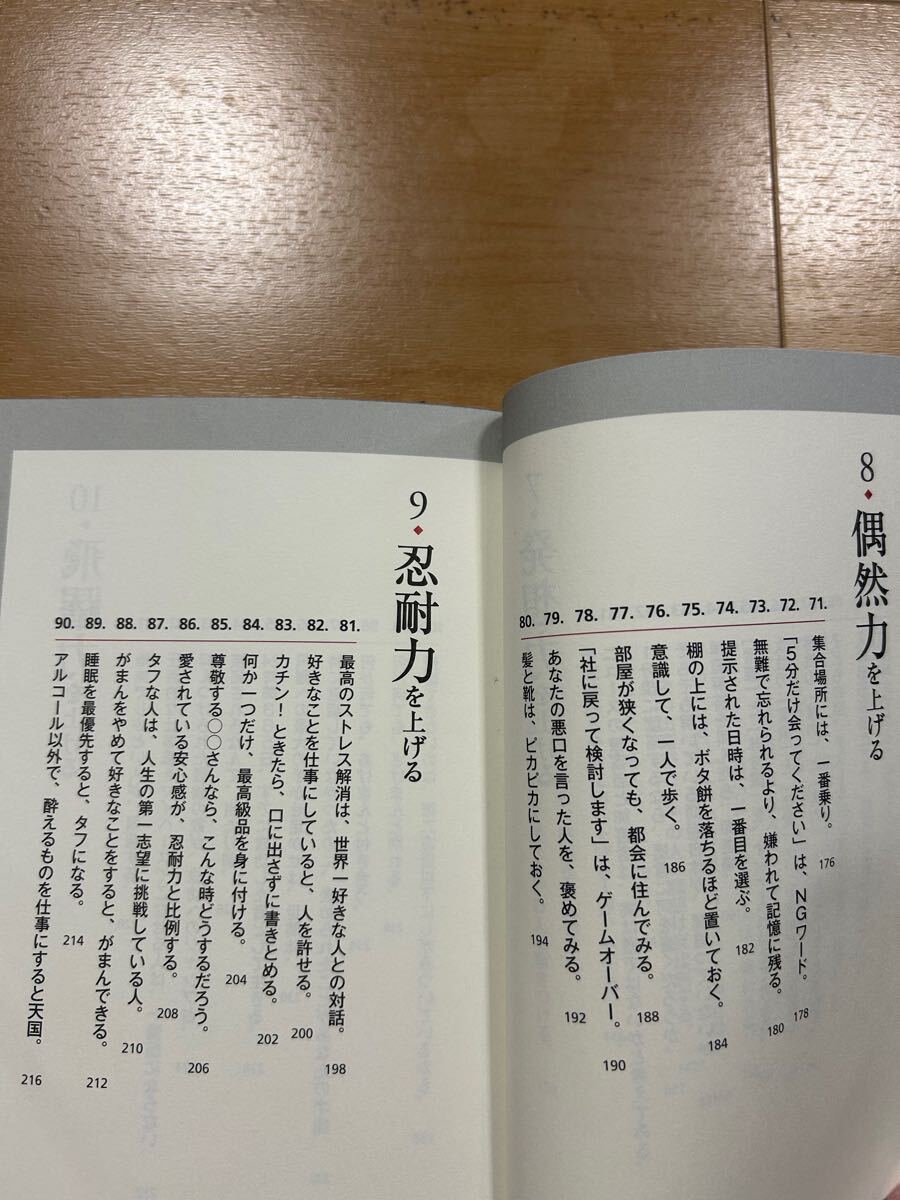 8◆偶然力を上げる
71. 集合場所には、一番乗り。 176
72. 「5分だけ会ってください」は、NGワード。 178
73. 無難で忘れられるより、嫌われて記憶に残る。 180
74. 提示された日時は、一番目を選ぶ。 182
75. 棚の上には、ボタ餅を落ちるほど置いておく。 184
76. 意識して、一人で歩く。 186
77. 部屋が狭くなっても、都会に住んでみる。 188
78. 「社に戻って検討します」は、ゲームオーバー。 190
79. あなたの悪口を言った人を、褒めてみる。 192
80. 髪と靴は、ピカピカにしておく。 194
9◆忍耐力を上げる
81. 最高のストレス解消は、世界一好きな人との対話。 198
82. 好きなことを仕事にしていると、人を許せる。 200
83. カチン!ときたら、口に出さずに書きとめる。 202
84. 何か一つだけ、最高級品を身に付ける。 204
85. 尊敬する○○さんなら、こんな時どうするだろう。 206
86. 愛されている安心感が、忍耐力と比例する。 208
87. タフな人は、人生の第一志望に挑戦している人。 210
88. がまんをやめて好きなことをすると、がまんできる。 212
89. 睡眠を最優先すると、タフになる。 214
90. アルコール以外で、酔えるものを仕事にすると天国。 216